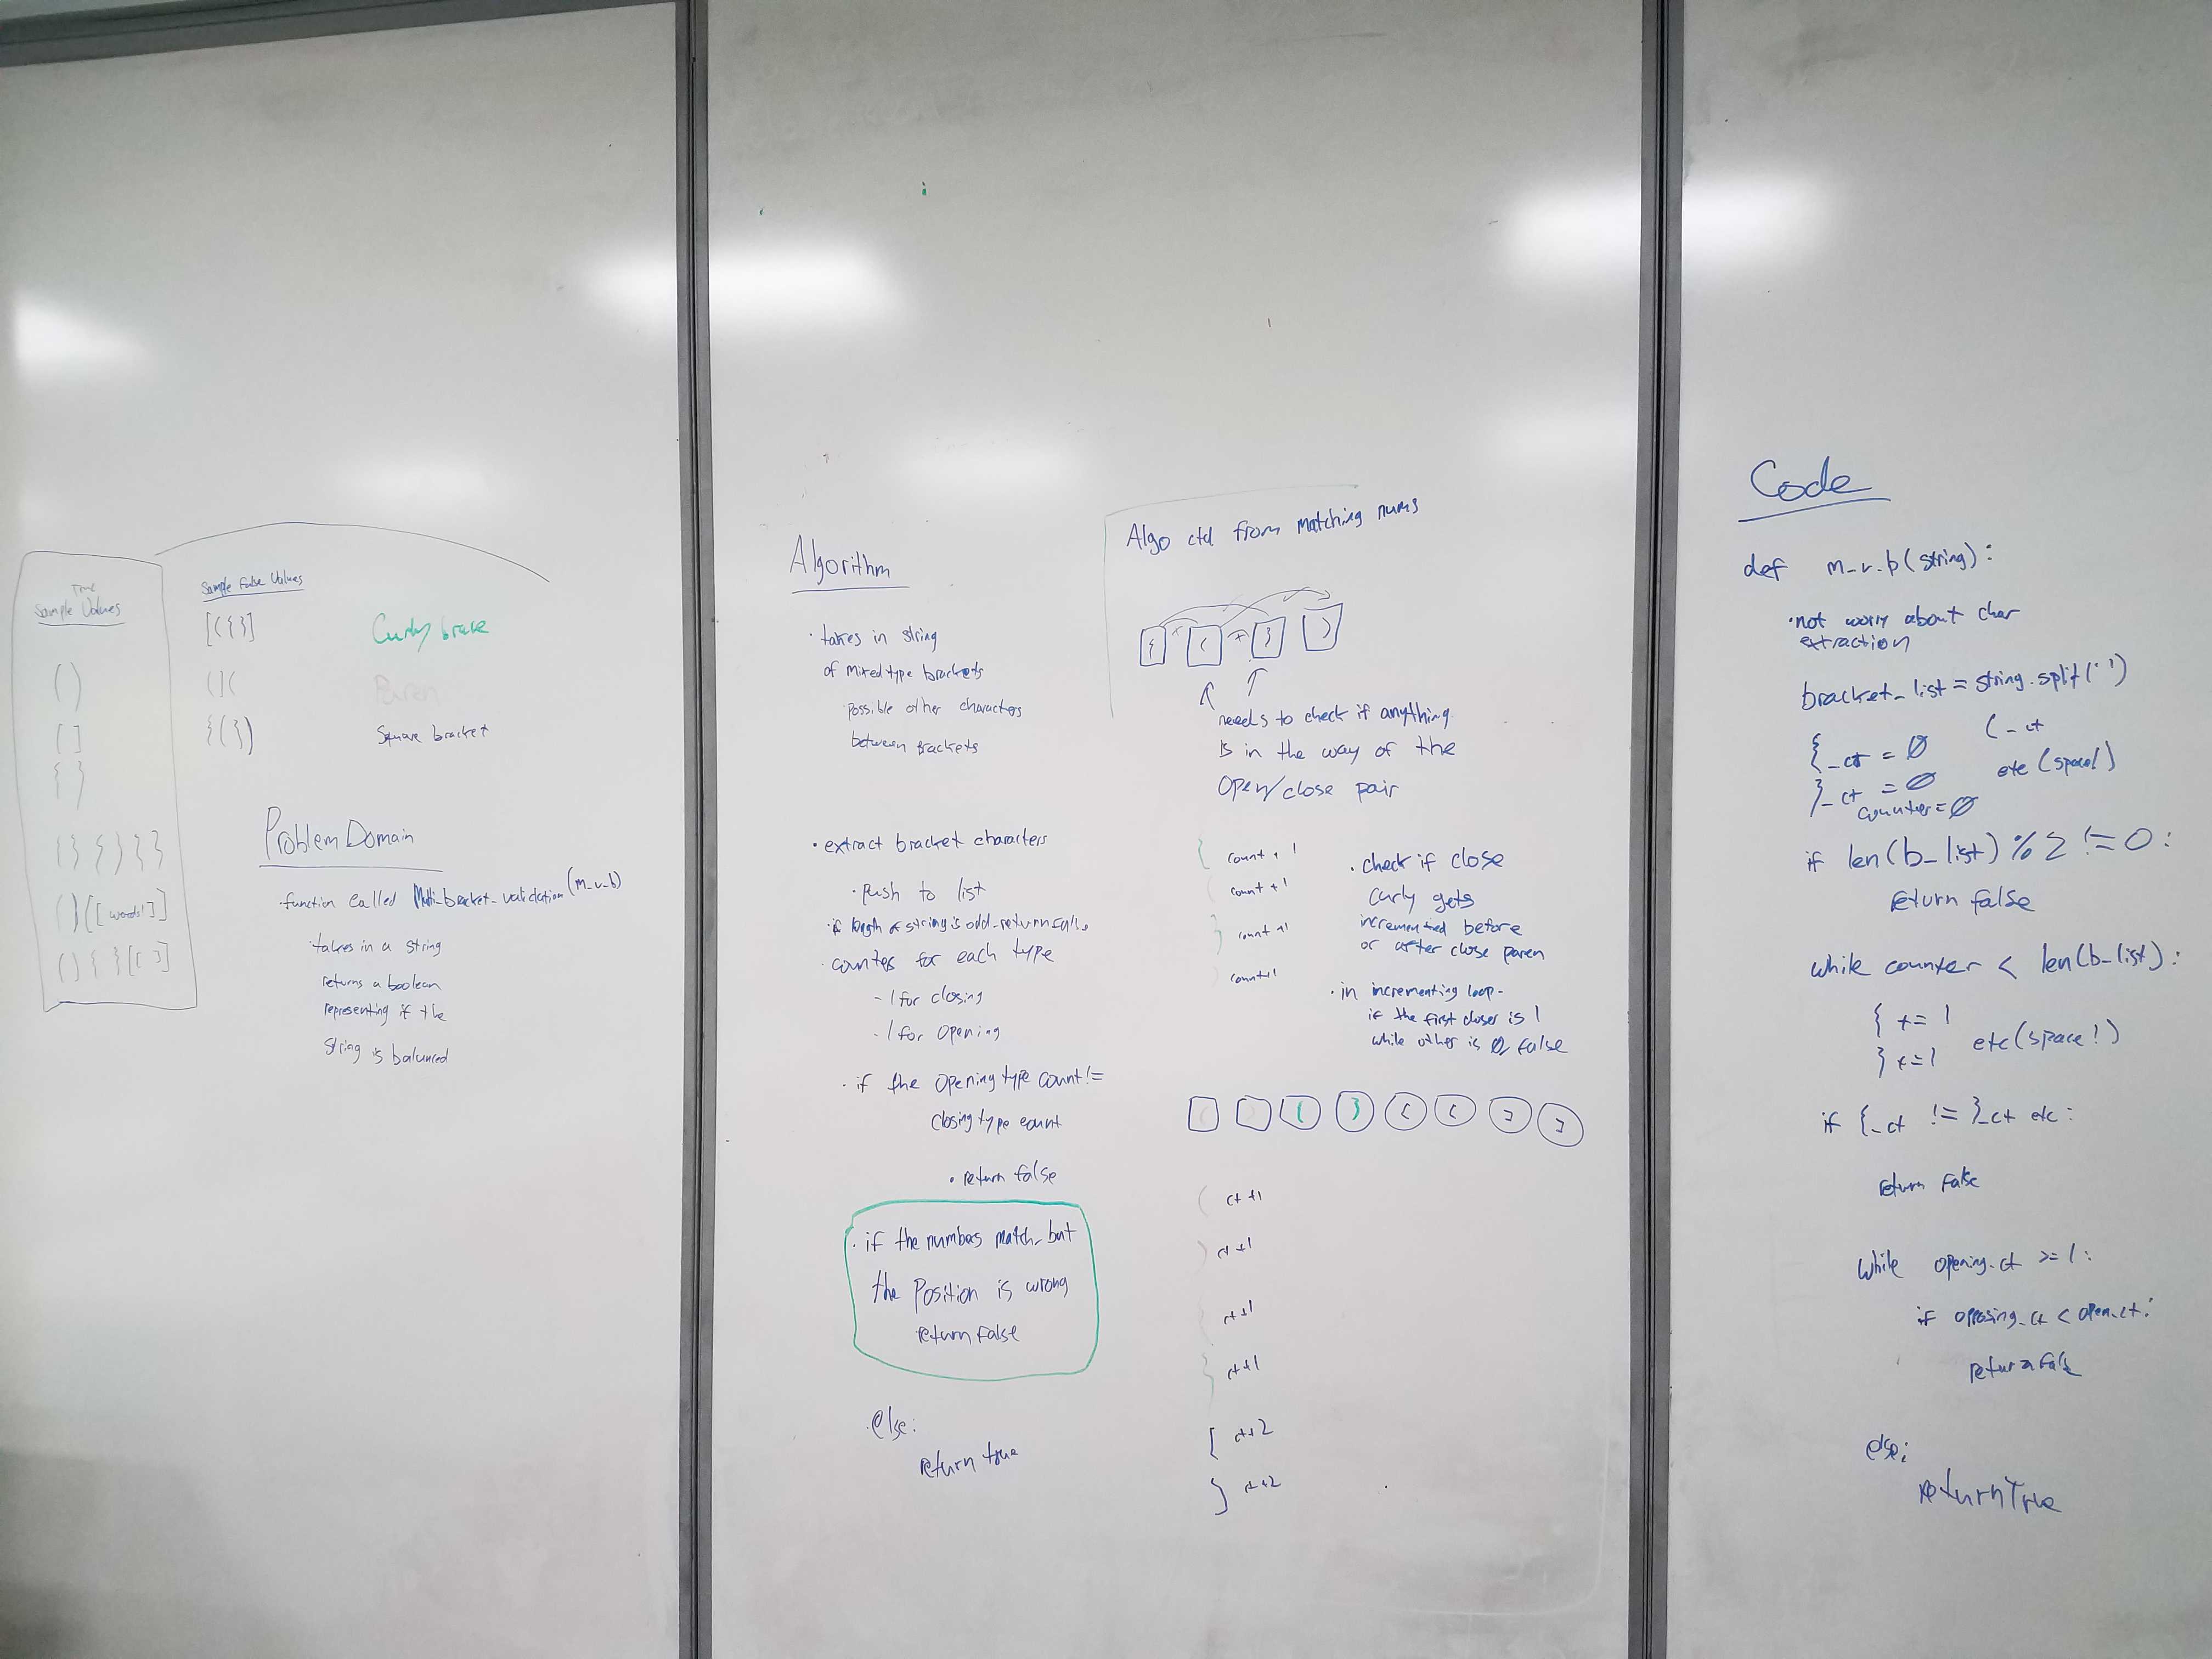 True
Sample Values
( )
[ ]
{ }
( ) { } ( [ words! ] ]
( ) { } [ [ ] ]
Sample False Values
[({}]
(](
{(})
Curly brace
Paren
Square bracket
Problem Domain
· function called Multi-bracket-validation (m-v-b)
· takes in a string
returns a boolean
representing if the
string is balanced
Algorithm
· takes in string
of mixed type brackets
possible other characters
between brackets
· extract bracket characters
· push to list
· if length of string is odd - return false
· counters for each type
- 1 for closing
- 1 for opening
· if the opening type count !=
closing type count
· return false
· if the numbers match - but
the position is wrong
return False
· else:
return true
Algo ctd from matching nums
{ ( } )
needs to check if anything
is in the way of the
open/close pair
{ count + 1
( count + 1
} count +1
count+1
· check if close
curly gets
incremented before
or after close paren
· in incrementing loop -
if the first closer is 1
while other is 0, false
( ) { } [ [ ] ]
( ct +1
) ct +1
{ ct +1
} ct +1
[ ct+2
] ct+2
Code
def m-v-b(string):
· not worry about char
extraction
bracket_list = string.split('')
{_ct = 0
}_ct = 0
(_ct
etc (space!)
counter = 0
if len(b_list) % 2 != 0:
return false
while counter < len(b_list):
{ += 1
} += 1
etc (space!)
if {_ct != }_ct etc:
return False
while opening_ct >= 1:
if opposing_ct < open_ct:
return False
else:
return True